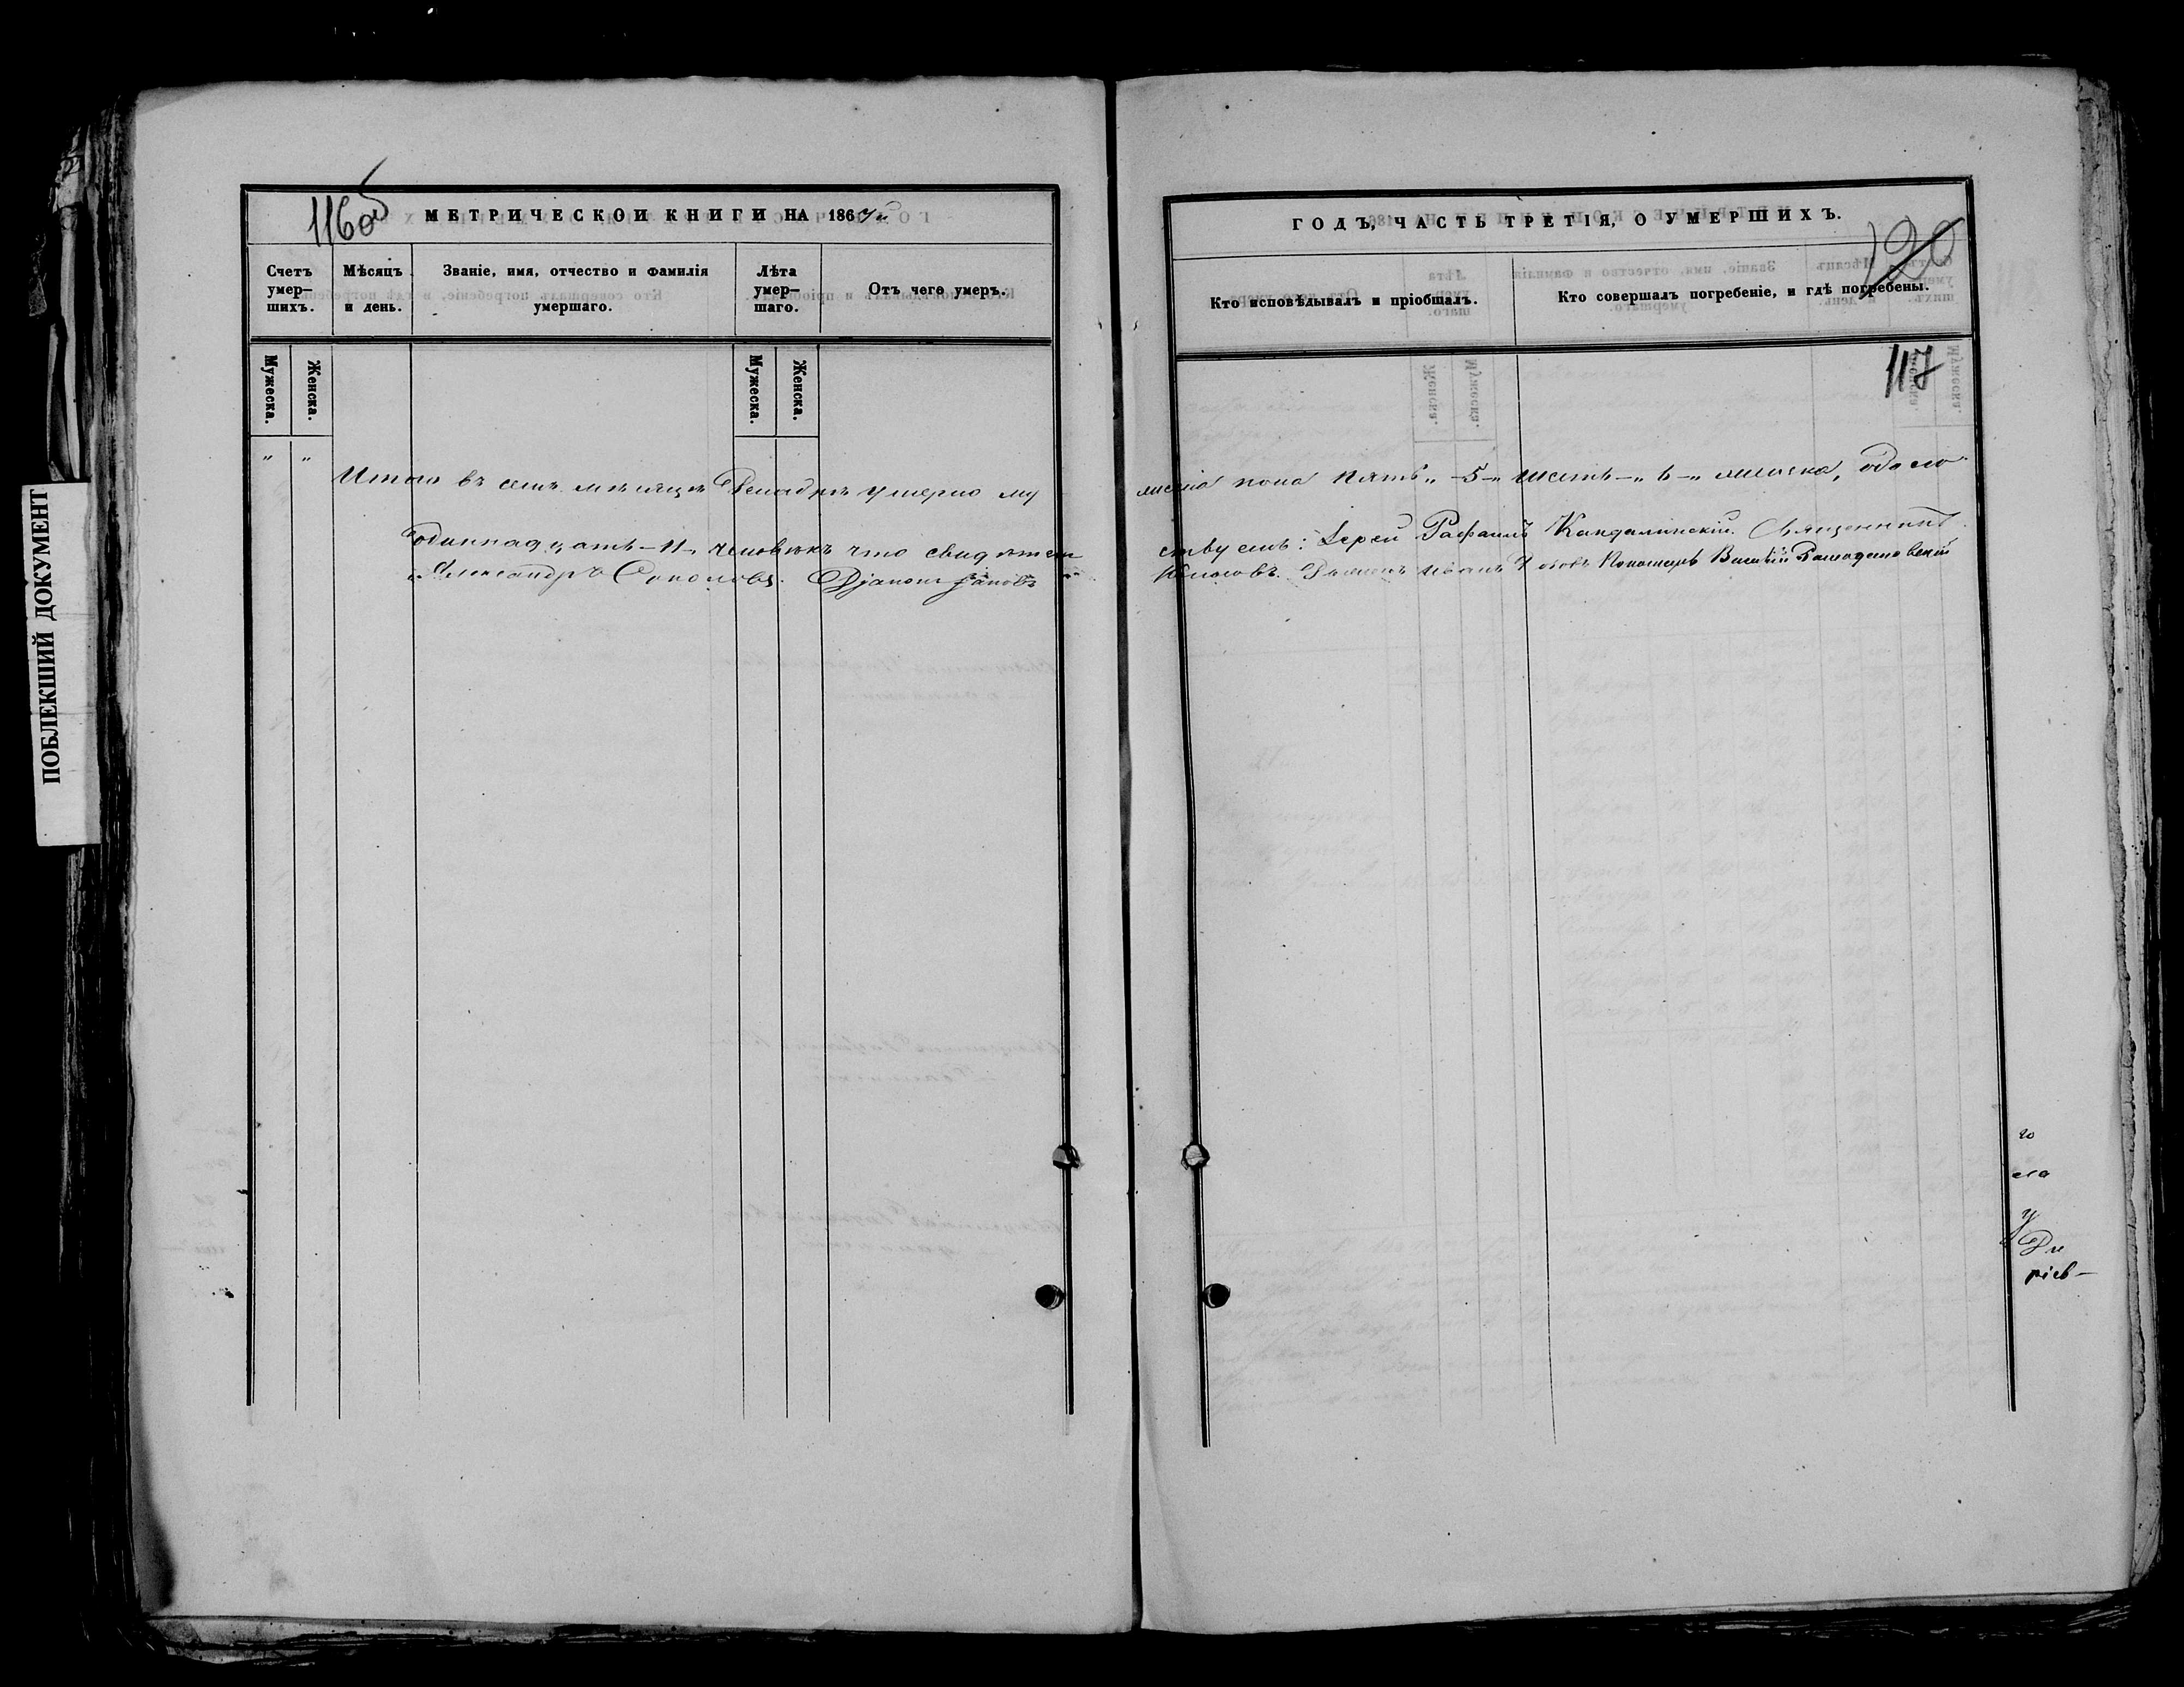 ПОБЛЕКШИЙ ДОКУМЕНТ
116об
МЕТРИЧЕСКОЙ КНИГИ НА 186
Счетъ умер-шихъ.
Мѣсяцъ и день.
Званіе, имя, отчество и фамилія умершаго.
Лѣта умер-шаго.
Отъ чего умеръ.
Мужеска.
Женска.
Мужеска.
Женска.
" "
Итого въ семъ мѣсяцѣ Декабрѣ умерло му
одиннадцать - 11 - человѣкъ что свидѣтель
Александръ Соколовъ. Діаконъ
ГОДЪ, ЧАСТЬ ТРЕТІЯ, О УМЕРШИХЪ.
120
Кто исповѣдывалъ и пріобщалъ.
Кто совершалъ погребеніе, и гдѣ погребены.
117
пола пять „ - 5 - „ шесть - „ 6 - „ обоего
ствуемъ: Іерей Рафаилъ Кандалинскій. Священникъ
Иванъ Пономарь Василій
го
ела
у
ріев-